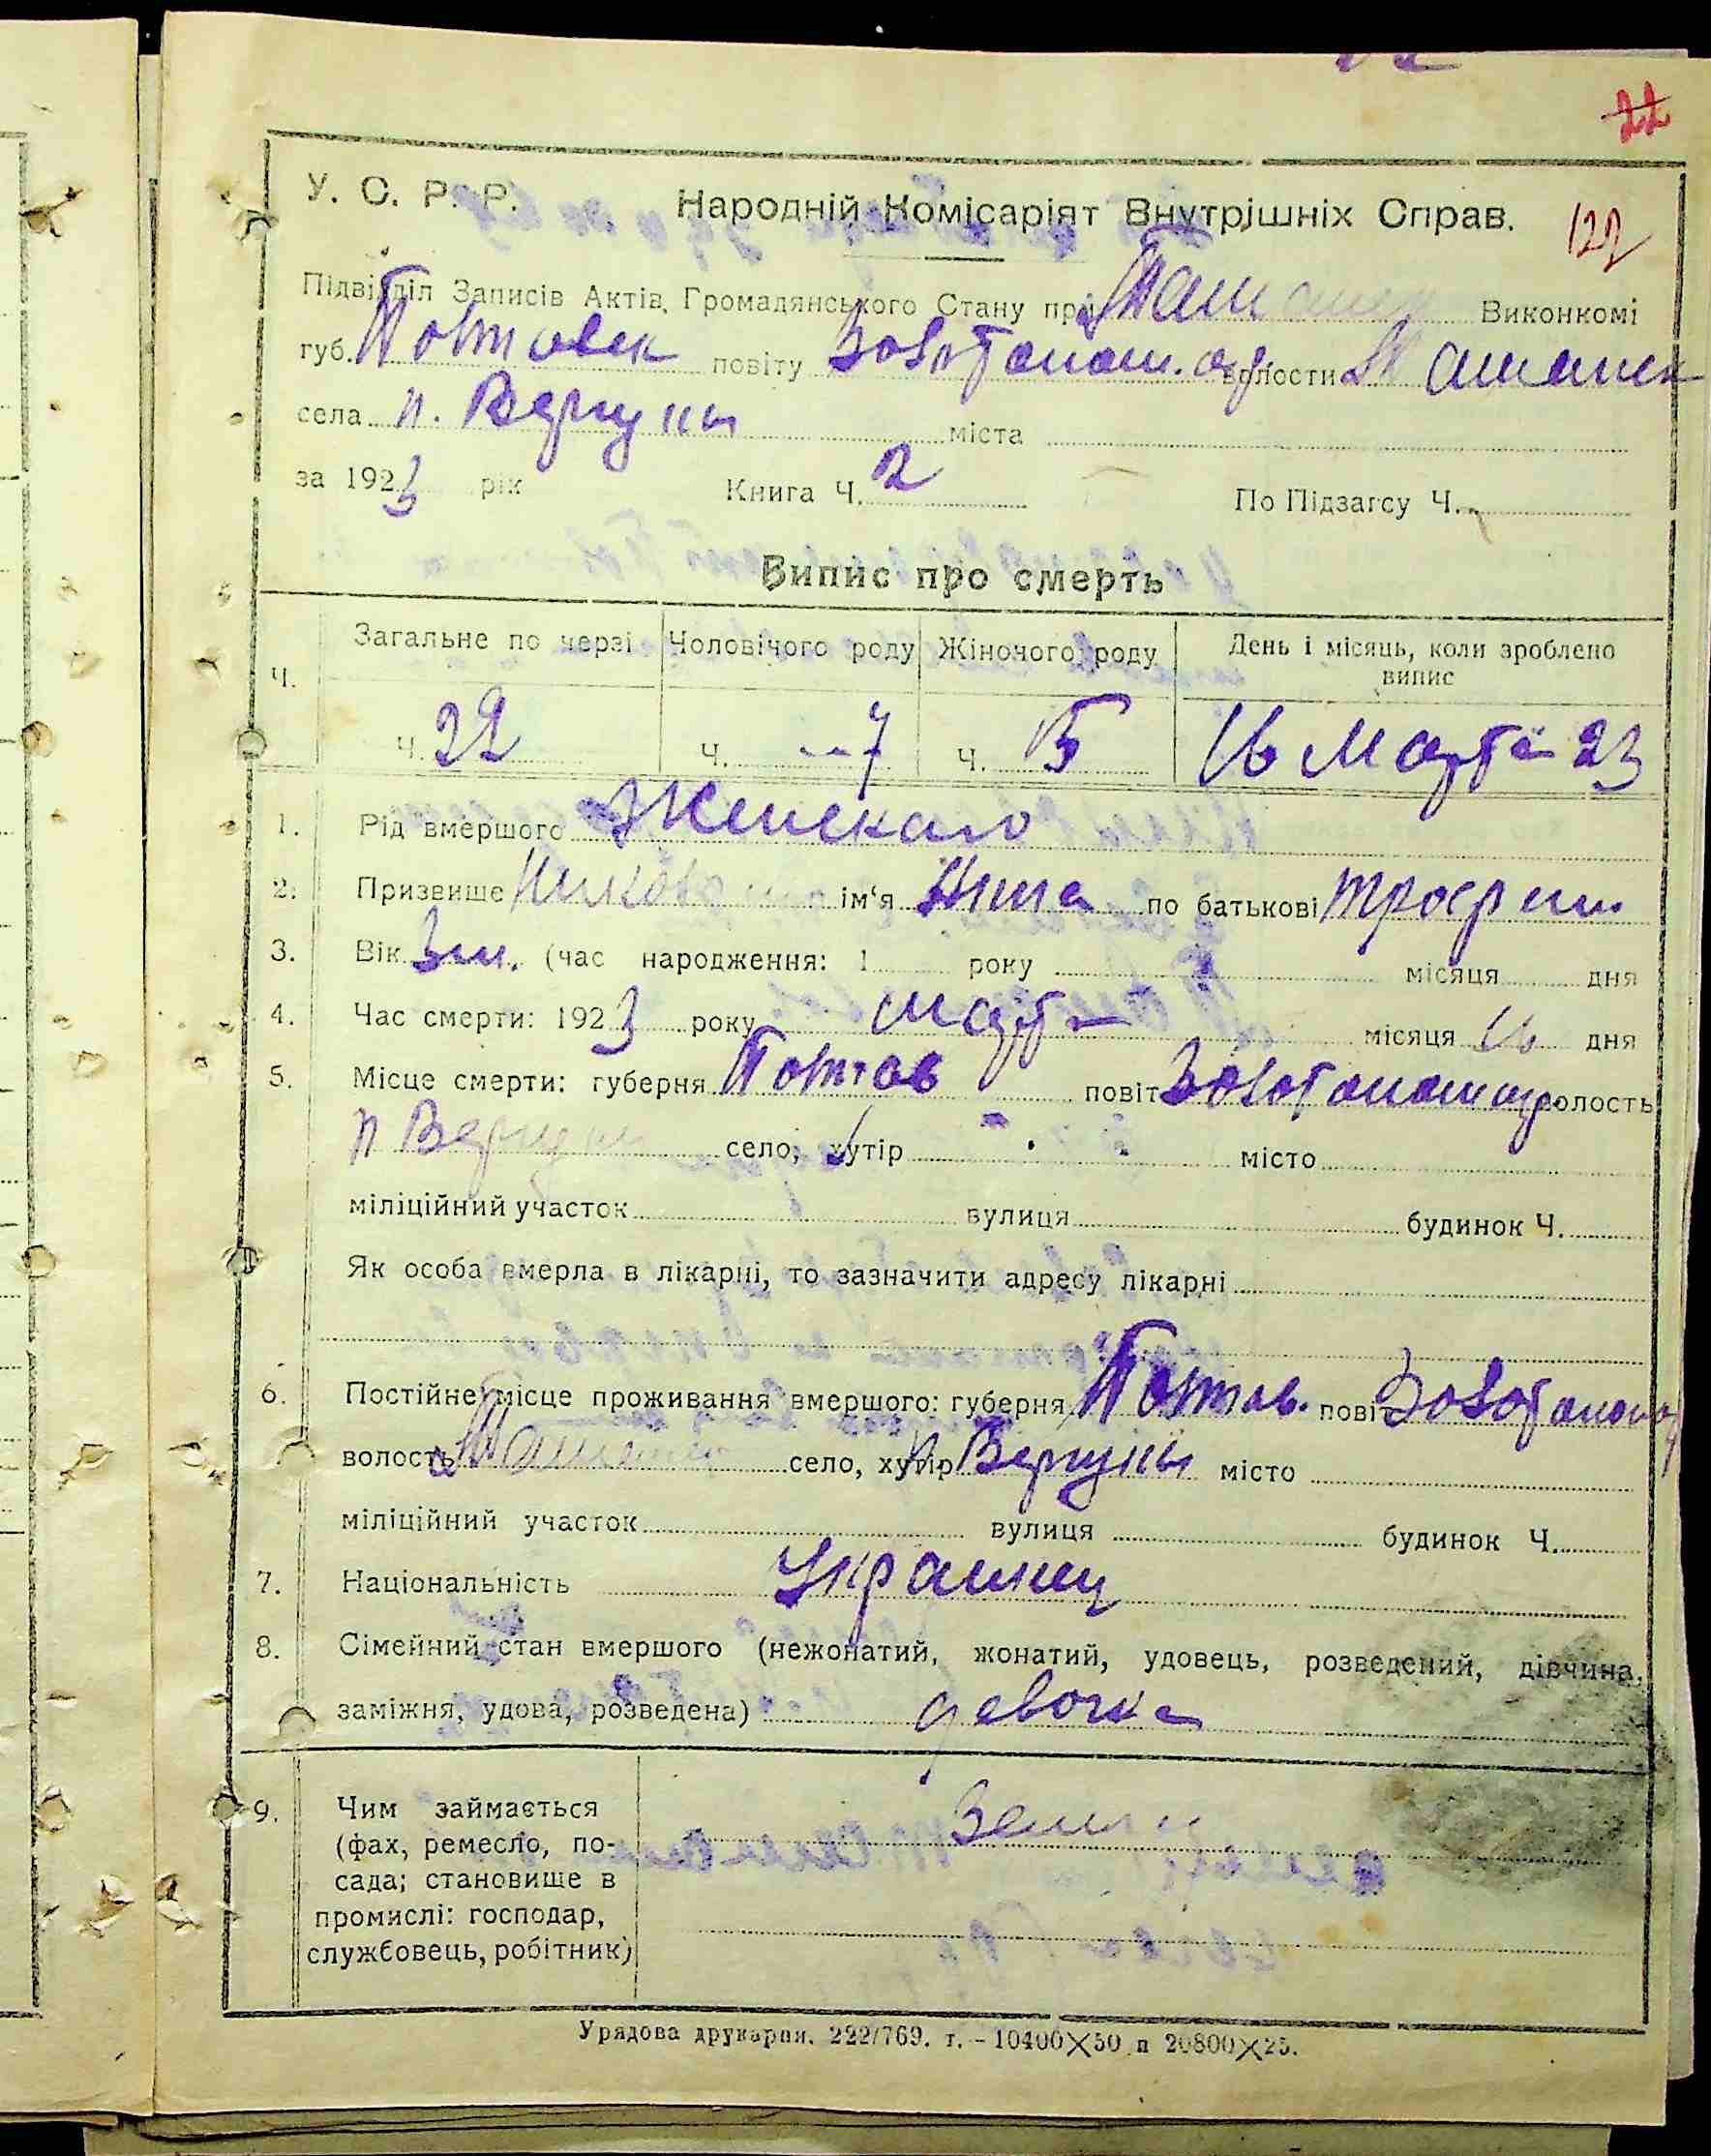 22
У. С. Р. Р. Народній Комісаріят Внутрішніх Справ. 122
Підвідділ Записів Актів Громадянського Стану при Виконкомі
губ. повіту волости
села п. Вергуны міста
за 1923 рік Книга Ч. 2 По Підзагсу Ч.
Випис про смерть
Ч. Загальне по черзі Чоловічого роду Жіночого роду День і місяць, коли зроблено
випис
Ч. 22 Ч. 7 Ч. 15 16 Марта 23
1. Рід вмершого Женскаго
2. Призвище ім'я по батькові
3. Вік (час народження: 1 року місяця дня
4. Час смерти: 1923 року март місяця 16 дня
5. Місце смерти: губерня Полтав повіт волость
п Вергун село, хутір місто
міліційний участок вулиця будинок Ч.
Як особа вмерла в лікарні, то зазначити адресу лікарні
6. Постійне місце проживання вмершого: губерня Полтав. повіт
волость село, хутір п Вергуны місто
міліційний участок вулиця будинок Ч.
7. Національність Украинец
8. Сімейний стан вмершого (нежонатий, жонатий, удовець, розведений, дівчина,
заміжня, удова, розведена) девочка
9. Чим займається
(фах, ремесло, по-
сада; становище в
промислі: господар,
службовець, робітник)
Урядова друкарня. 222/769. т. - 10400×50 п 20800×25.